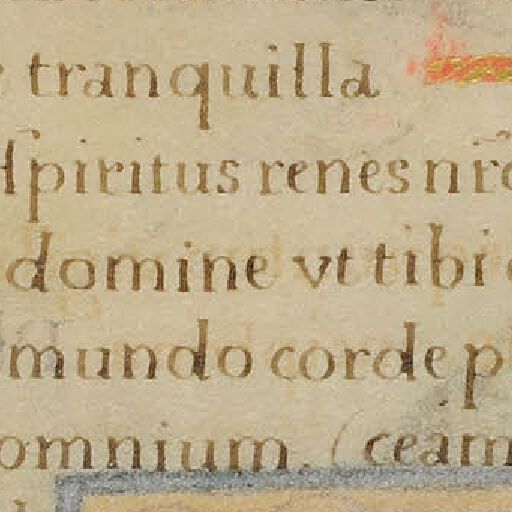 tranquilla
spiritus renes nr̄o
domine vt tibi
mundo corde p
omnium. ceam